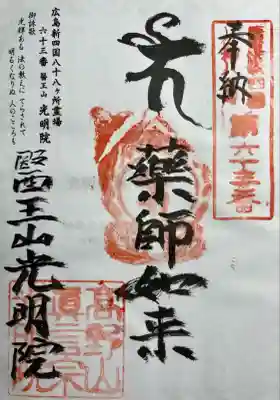 奉納
第六十三番
薬師如来
広島新四国八十八ヶ所霊場
六十三番 醫王山 光明院
御詠歌
光輝ある 法の教えに てらされて
明るくなりぬ 人のこころも
醫王山光明院
高野山
真言宗